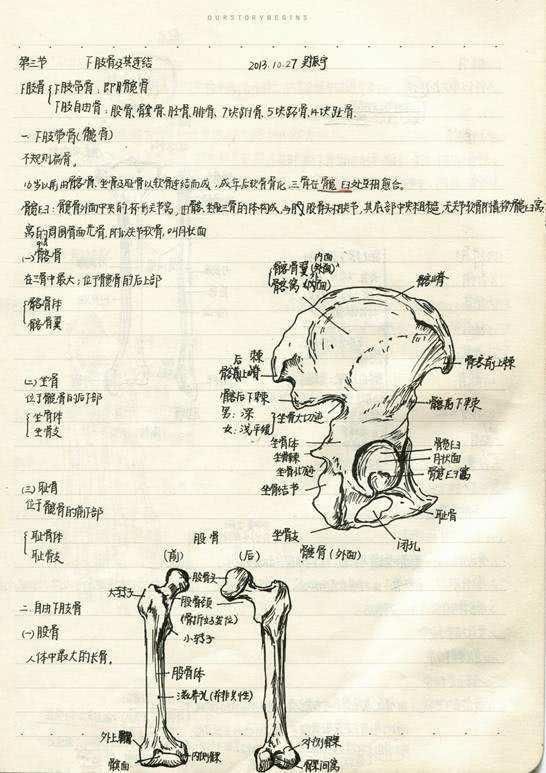 OURSTORYBEGINS
第三节 下肢骨及其连结 2013.10.27
下肢骨
下肢带骨：即髋骨
下肢自由骨：股骨，髌骨，胫骨，腓骨，7块跗骨，5块跖骨，14块趾骨。
一.下肢带骨(髋骨)
不规则扁骨。
16岁以前由髂骨、坐骨及耻骨以软骨连结而成，成年后软骨骨化，三骨在髋臼处互相愈合。
髋臼：髋骨外面中央的
窝的周围骨面
(一)髂骨
在三骨中最大；位于髋骨的后上部
髂骨体
髂骨翼
内面
髂骨翼(外面)
髂窝(内面)
髂嵴
后
髂前上棘
髂后下棘
男：深
女：浅平缓
坐骨大切迹
髂前下棘
(二)坐骨
位于髋骨的后下部
坐骨体
坐骨支
坐骨体
坐骨棘
坐骨小切迹
坐骨结节
髋臼
月状面
髋臼窝
耻骨
坐骨支
闭孔
髋骨(外面)
(三)耻骨
位于髋骨的前下部
耻骨体
耻骨支
股骨
(前)
(后)
股骨头
大转子
股骨颈
(骨折好发位)
小转子
二.自由下肢骨
(一)股骨
人体中最大的长骨。
股骨体
滋养孔
外上髁
髌面
内侧髁
外侧髁
髁间窝